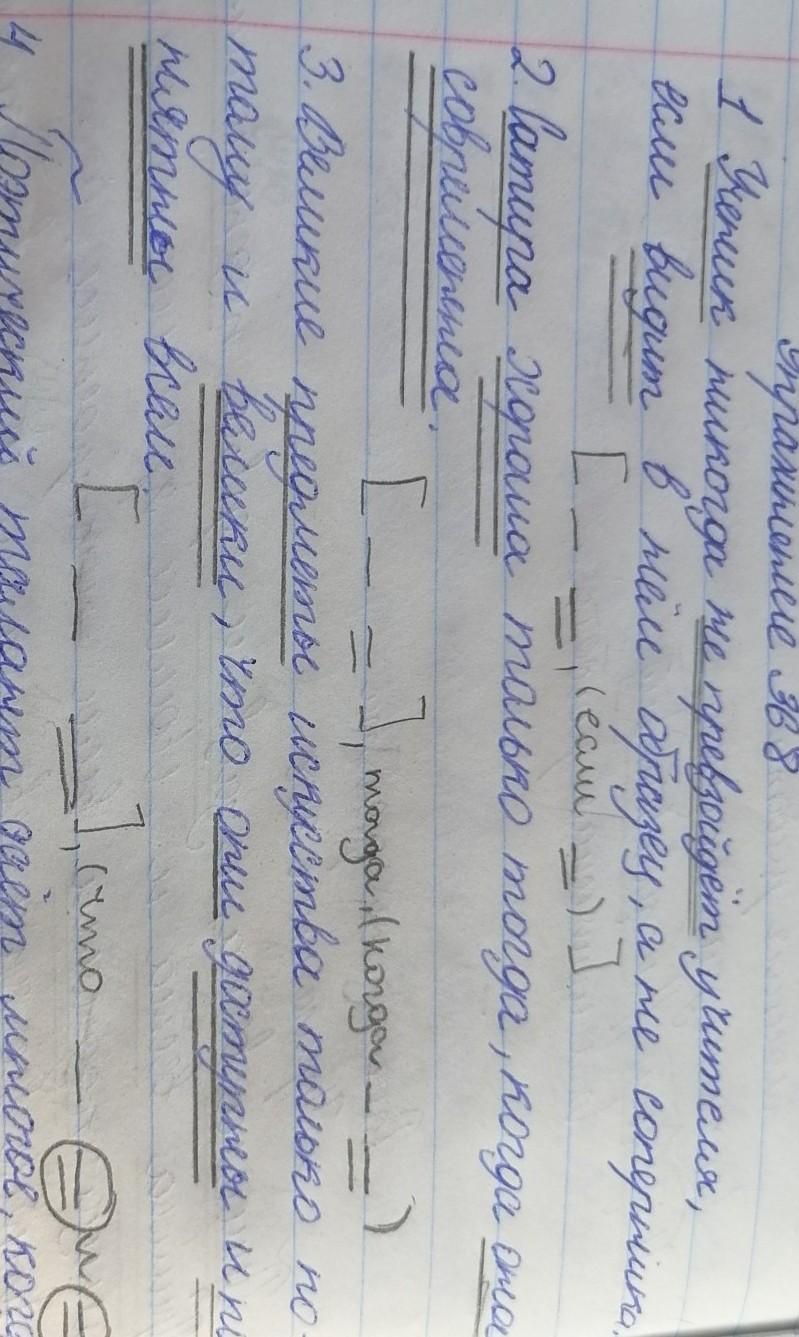 Упражнение № 8
1 Ученик никогда не превзойдёт учителя,
если видит в нём образец, а не соперника.
[ – =, (если =) ]
2. Сатира хороша только тогда, когда она
современна.
[ – = ], тогда, (когда – =)
3. Великие предметы искусства только по-
тому и велики, что они доступны и п
нятны всем.
[ – = ], (что – = и =
4 Поэтический талант даёт многое, ког